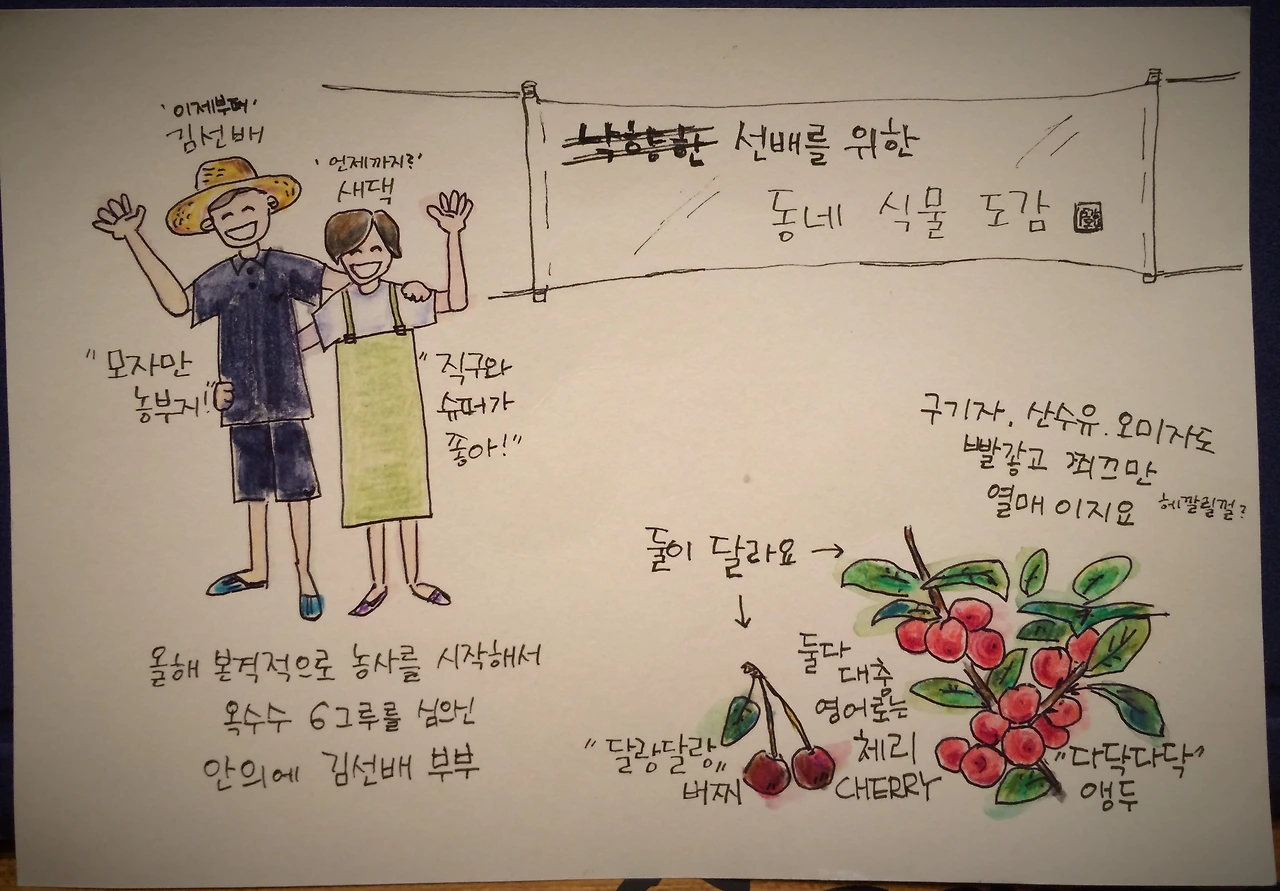 '이제부터'
김선배
'언제까지?'
새댁
낙향한 선배를 위한
동네 식물 도감
"모자만
농부지!"
"직구와
슈퍼가
좋아!"
구기자, 산수유, 오미자도
빨갛고 쬐끄만
열매 이지요 헤깔릴껄?
둘이 달라요 →
↓
둘다
대충
영어로는
체리
CHERRY
"달랑달랑"
버찌
"다닥다닥"
앵두
올해 본격적으로 농사를 시작해서
옥수수 6그루를 심으신
안의에 김선배 부부